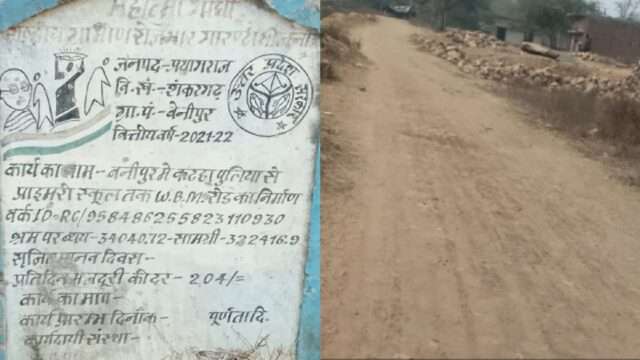 महात्मा गांधी
राष्ट्रीय ग्रामीण रोजगार गारण्टी योजना
जनपद-प्रयागराज
वि.खं.-शंकरगढ़
ग्रा.पं.-बेनीपुर
वित्तीय वर्ष-2021-22
उत्तर प्रदेश सरकार
कार्य का नाम-बेनीपुर मे कटहा पुलिया से
प्राइमरी स्कूल तक W.B.M रोड का निर्माण
वर्क ID=RC/958486255823110930
श्रम पर व्यय-34040.72-सामग्री-322416.9
सृजित मानव दिवस-
प्रतिदिन मजदूरी की दर- 204/=
कार्य का माप-
कार्य प्रारम्भ दिनांक- पूर्णता दि.
कार्यदायी संस्था-